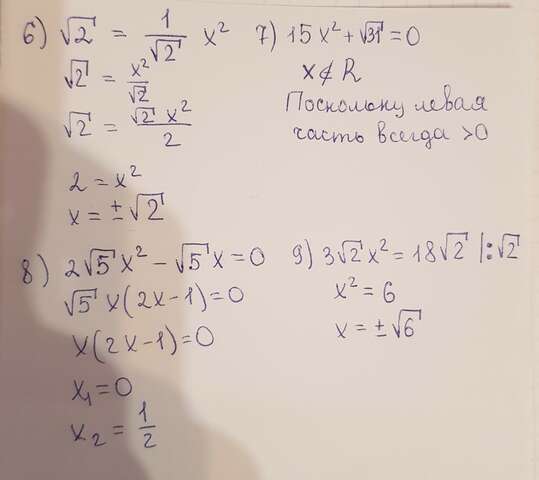 6) √2 = 1/√2 x²
√2 = x²/√2
√2 = √2 x²/2
2 = x²
x = ±√2
7) 15x² + √31 = 0
x ∉ R
Поскольку левая
часть всегда >0
8) 2√5 x² − √5 x = 0
√5 x(2x−1) = 0
x(2x−1) = 0
x₁ = 0
x₂ = 1/2
9) 3√2 x² = 18√2 |:√2
x² = 6
x = ±√6